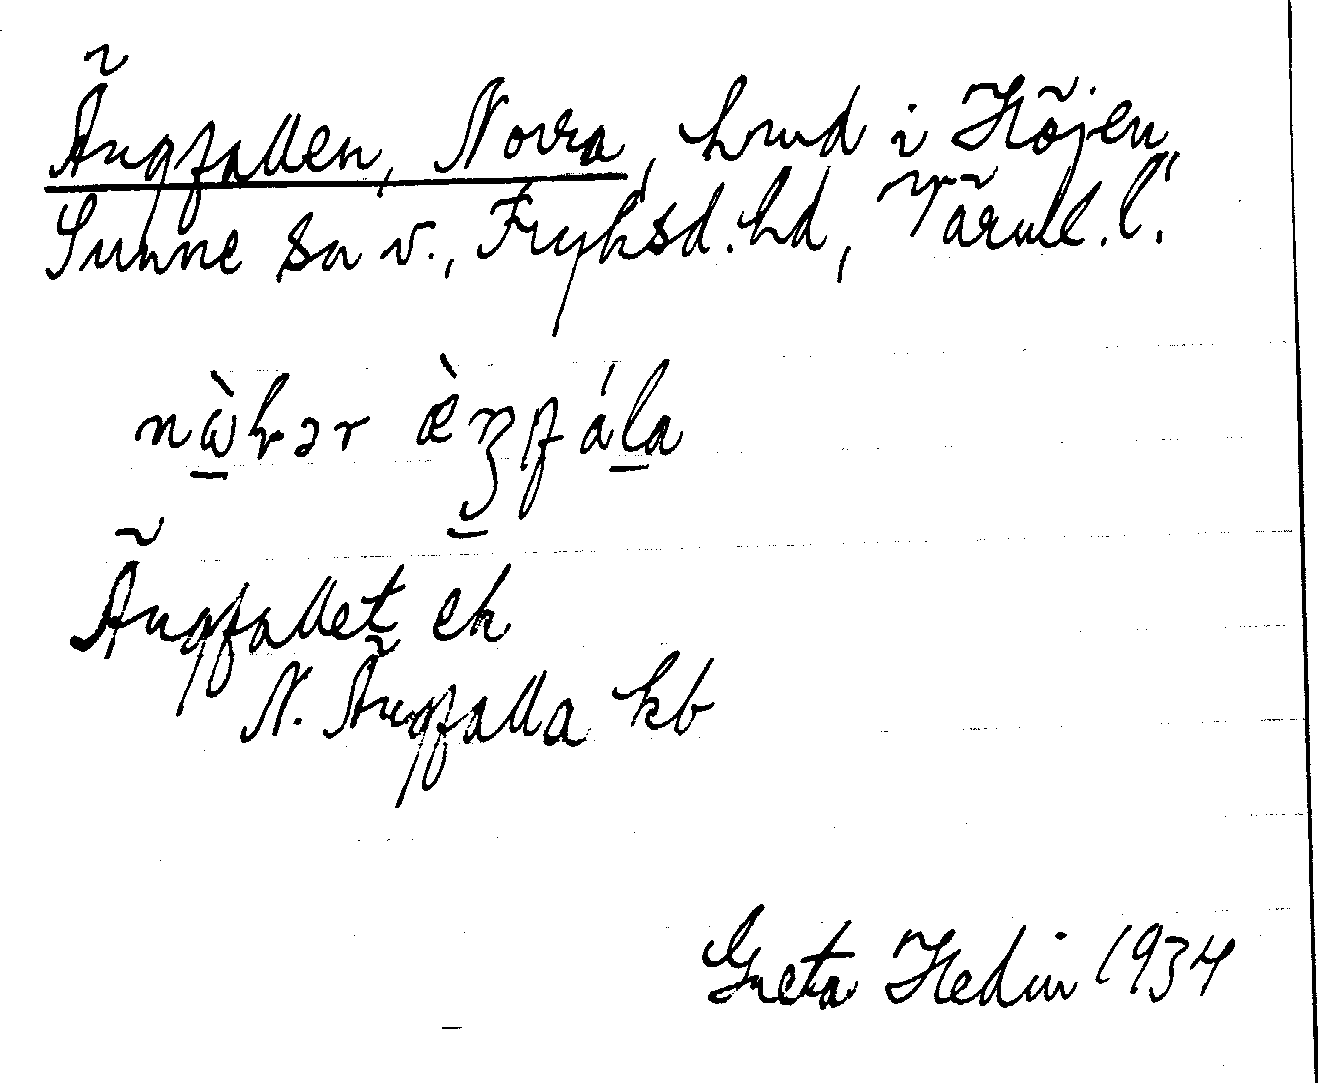 Ängfallen, Norra, hmd i Höjen,
Sunne sn v., Fryksd. hd, Värml. l.
Ängfallet ek
N. Ängfalla kb
Greta Hedin 1934